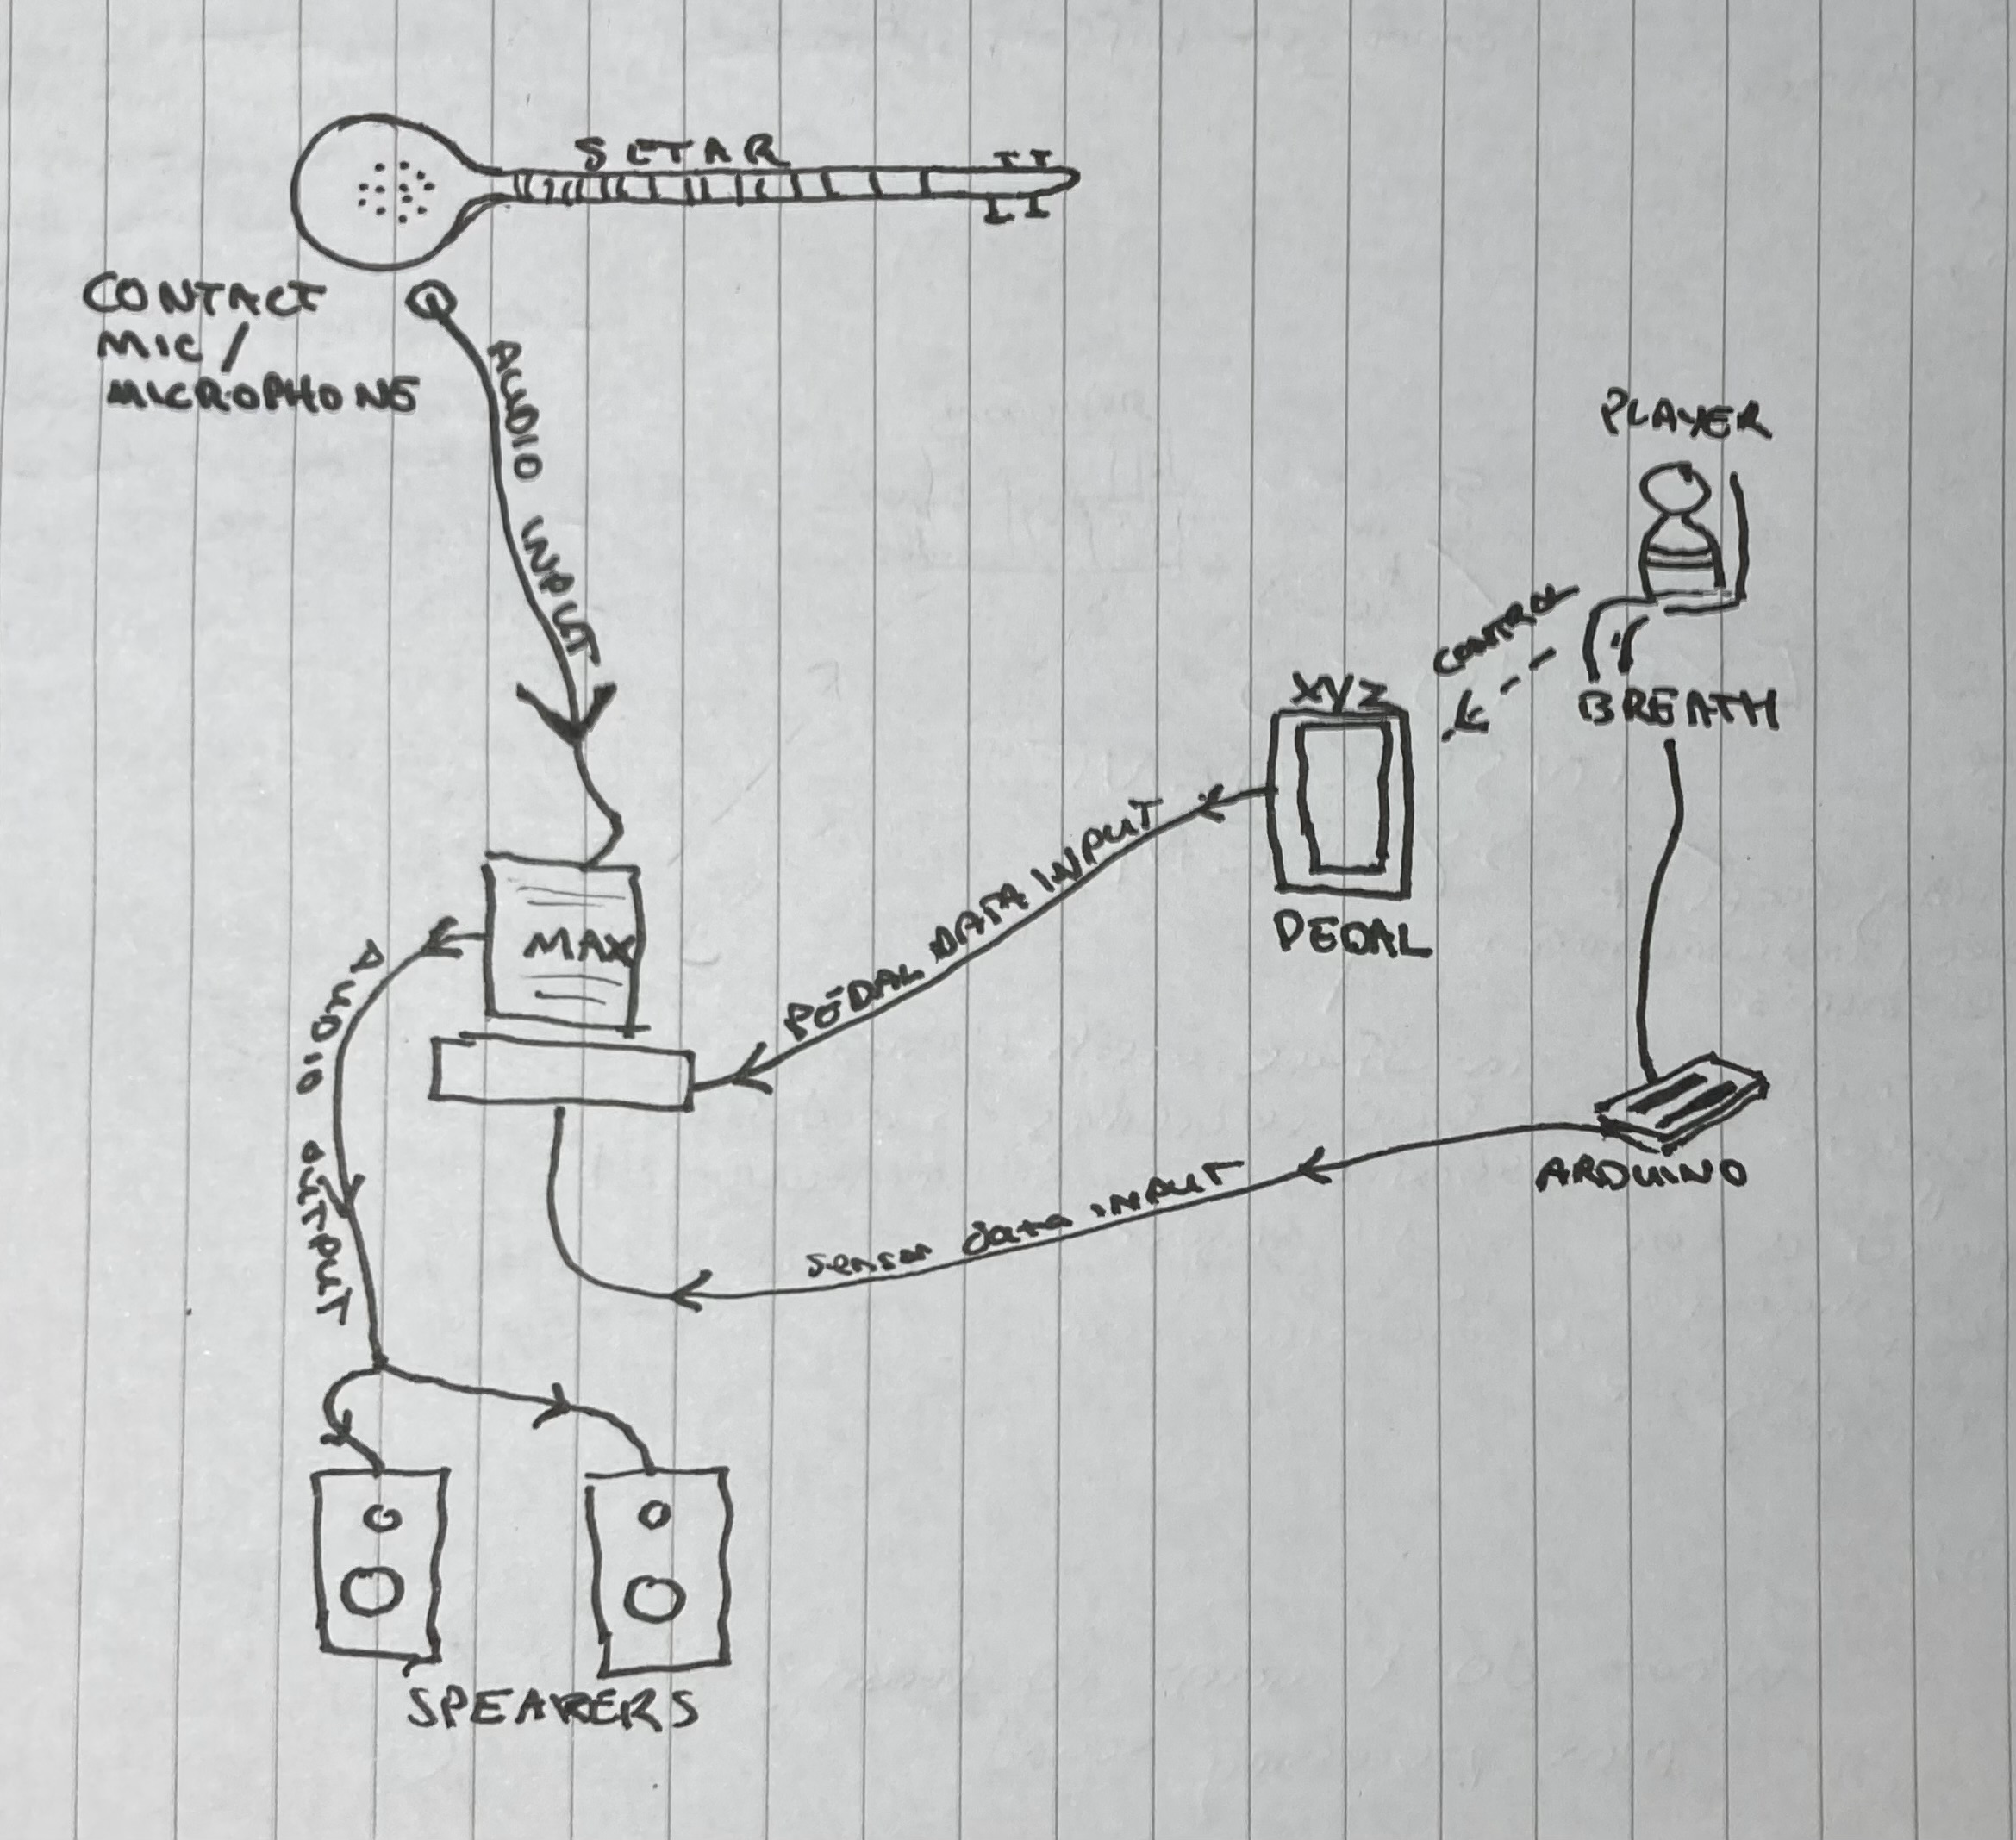 SETAR
CONTACT
MIC/
MICROPHONE
AUDIO INPUT
PLAYER
CONTROL
BREATH
XYZ
PEDAL
PEDAL DATA INPUT
MAX
AUDIO OUTPUT
ARDUINO
sensor data INPUT
SPEAKERS